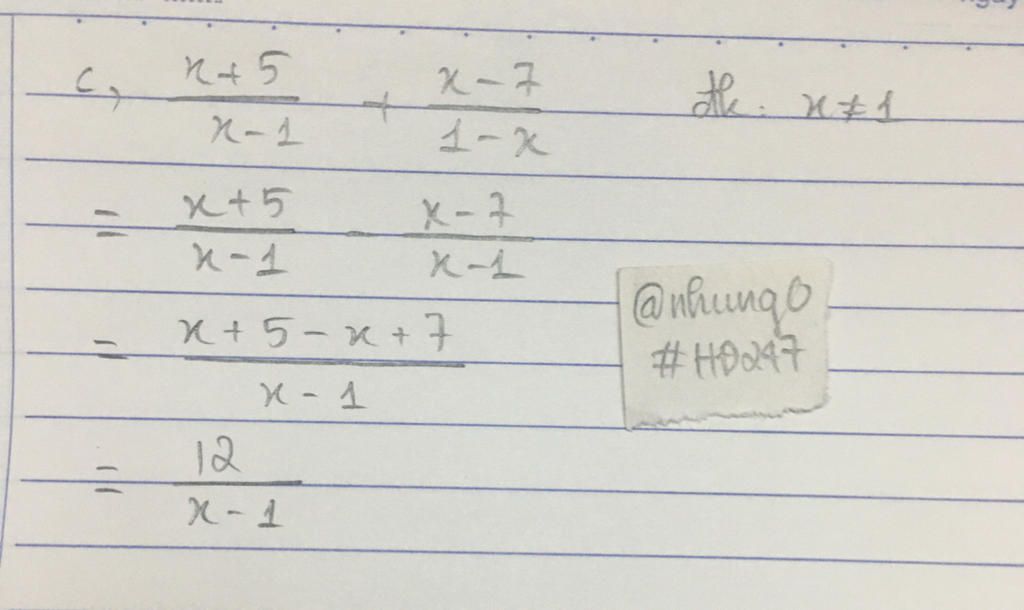 c, \frac{x+5}{x-1} + \frac{x-7}{1-x} đk: x ≠ 1
= \frac{x+5}{x-1} - \frac{x-7}{x-1}
= \frac{x+5-x+7}{x-1}
@nhungO
#HĐ247
= \frac{12}{x-1}